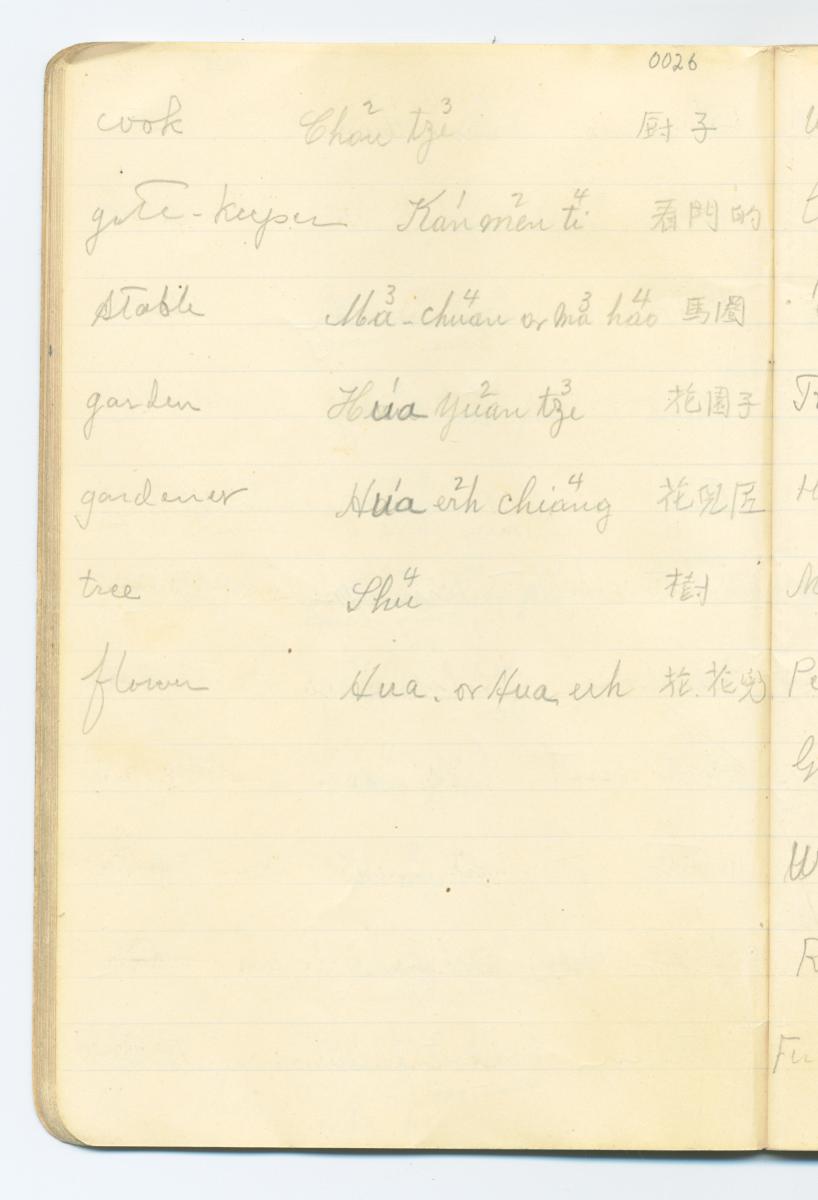 0026
cook Chou² tze³ 厨子
gate-keeper Kan¹ mên² ti⁴ 看門的
stable Ma³-chuan⁴ or ma³ hao⁴ 馬圈
garden Hua¹ yüan² tze³ 花園子
gardener Hua¹ erh² chiang⁴ 花兒匠
tree Shu⁴ 樹
flower Hua. or Hua erh 花.花兒